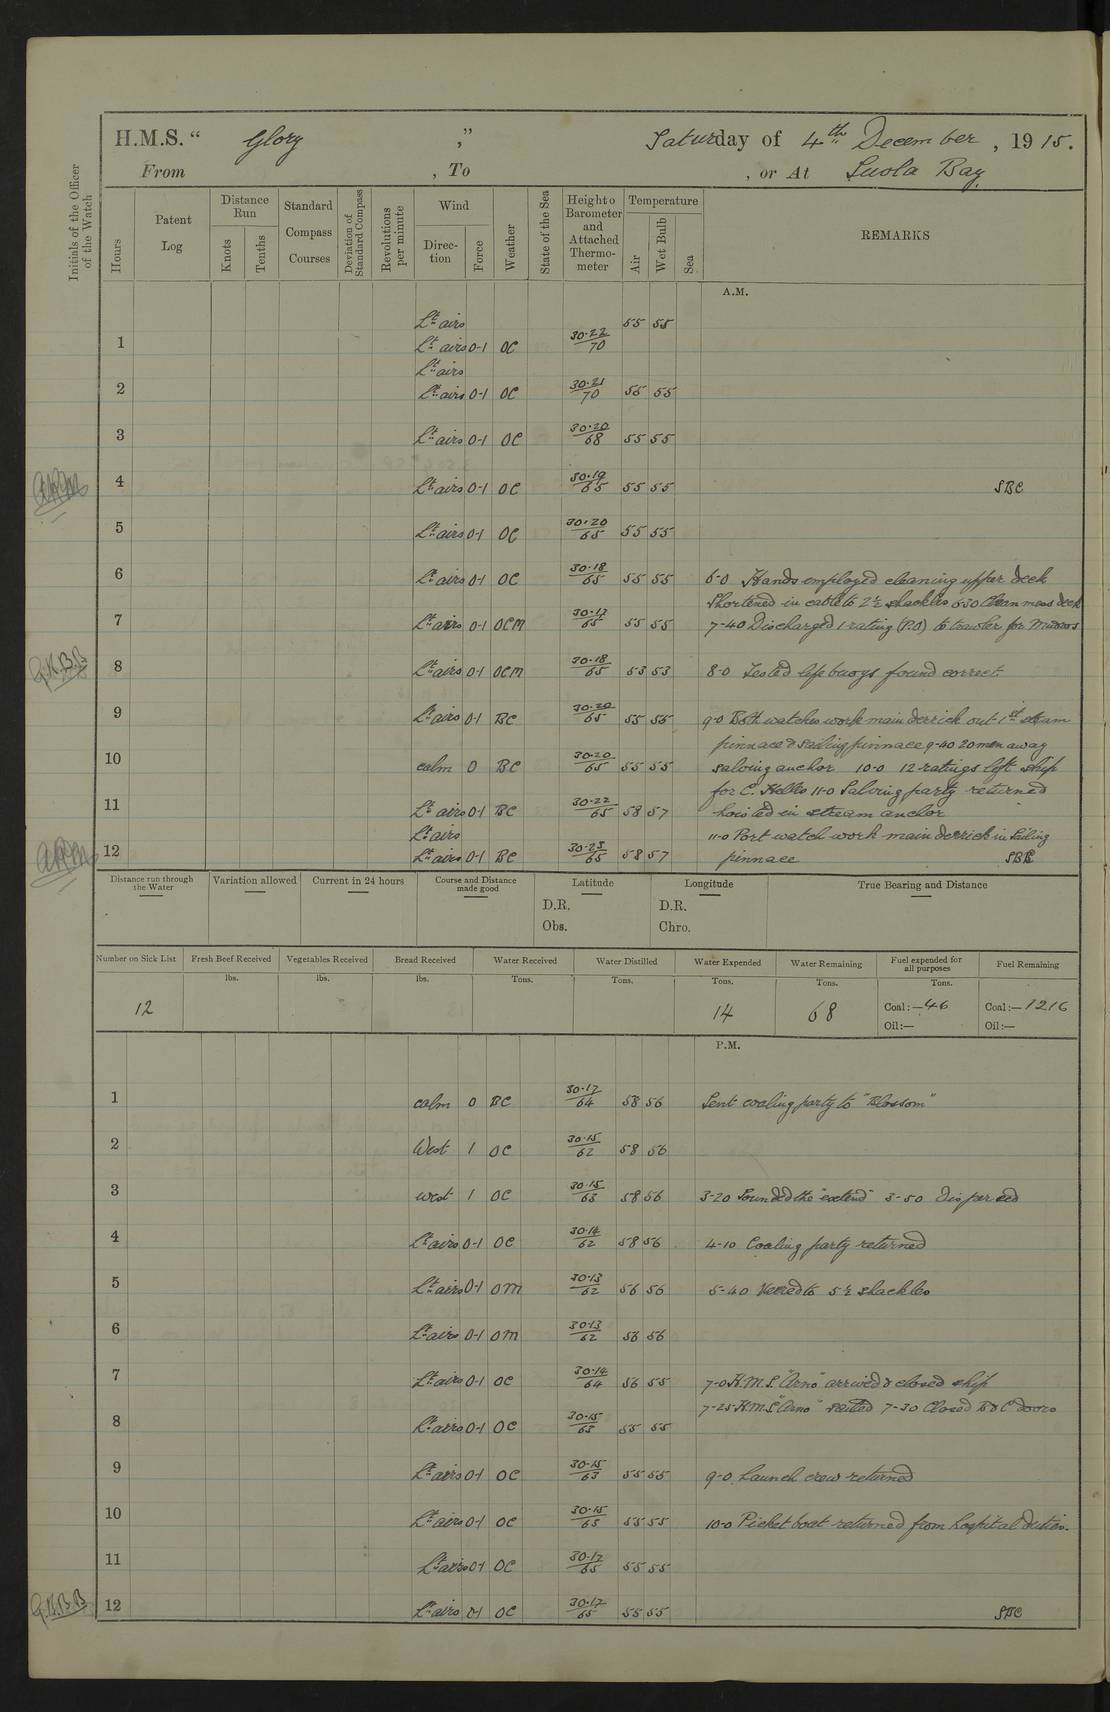 H.M.S. “ Glory ” Saturday of 4th December, 1915.
From , To , or At Suola Bay
Initials of the Officer of the Watch
Hours
Patent Log
Distance Run
Knots
Tenths
Standard Compass Courses
Deviation of Standard Compass
Revolutions per minute
Wind
Direction
Force
Weather
State of the Sea
Height of Barometer and Attached Thermometer
Temperature
Air
Wet Bulb
Sea
REMARKS
A.M.
Lt airs 55 55
1 Lt airs 0-1 OC 30·22/70
Lt airs
2 Lt airs 0-1 OC 30·21/70 55 55
3 Lt airs 0-1 OC 30·20/68 55 55
4 Lt airs 0-1 OC 30·19/65 55 55 SBC
5 Lt airs 0-1 OC 30·20/65 55 55
6 Lt airs 0-1 OC 30·18/65 55 55 6-0 Hands employed cleaning upper deck
Shortened in cable to 2½ shackles 6-30 Clean mess deck
7 Lt airs 0-1 OCM 30·17/65 55 55 7-40 Discharged 1 rating (P.O) to trawler for Mudros
8 Lt airs 0-1 OCM 30·18/65 53 53 8-0 Tested lifebuoys found correct.
G.K.B.B
9 Lt airs 0-1 BC 30·20/65 55 55 9-0 Both watches work main derrick out 1st steam
pinnace & sailing pinnace 9-40 20 men away
10 calm 0 BC 30·20/65 55 55 salving anchor 10-0 12 ratings left ship
for C. Helles 11-0 Salving party returned
11 Lt airs 0-1 BC 30·22/65 58 57 hoisted in stream anchor
Lt airs 11-0 Port watch work main derrick in Sailing
12 Lt airs 0-1 BC 30·23/65 58 57 pinnace SBC
Distance run through the Water
Variation allowed
Current in 24 hours
Course and Distance made good
Latitude
D.R.
Obs.
Longitude
D.R.
Chro.
True Bearing and Distance
Number on Sick List
Fresh Beef Received
Vegetables Received
Bread Received
Water Received
Water Distilled
Water Expended
Water Remaining
Fuel expended for all purposes
Fuel Remaining
lbs. lbs. lbs. Tons. Tons. Tons. Tons. Tons.
12 14 68 Coal:—46 Coal:—1216
Oil:— Oil:—
P.M.
1 calm 0 BC 30·17/64 58 56 Sent coaling party to "Blossom"
2 West 1 OC 30·15/62 58 56
3 west 1 OC 30·15/63 58 56 3-20 Sounded the "extend" 3-50 Dispersed
4 Lt airs 0-1 OC 30·14/62 58 56 4-10 Coaling party returned
5 Lt airs 0-1 OM 30·13/62 56 56 5-40 Veered to 5½ shackles
6 Lt airs 0-1 OM 30·13/62 56 56
7 Lt airs 0-1 OC 30·14/64 56 55 7-0 H.M.S. "Arno" arrived & closed ship
7-25 H.M.S "Arno" sailed 7-30 Closed B & C doors
8 Lt airs 0-1 OC 30·15/63 55 55
9 Lt airs 0-1 OC 30·15/63 55 55 9-0 Launch crew returned
10 Lt airs 0-1 OC 30·15/65 55 55 10-0 Picket boat returned from hospital duties.
11 Lt airs 0-1 OC 30·17/65 55 55
12 Lt airs 0-1 OC 30·17/65 55 55 SBC
G.K.B.B